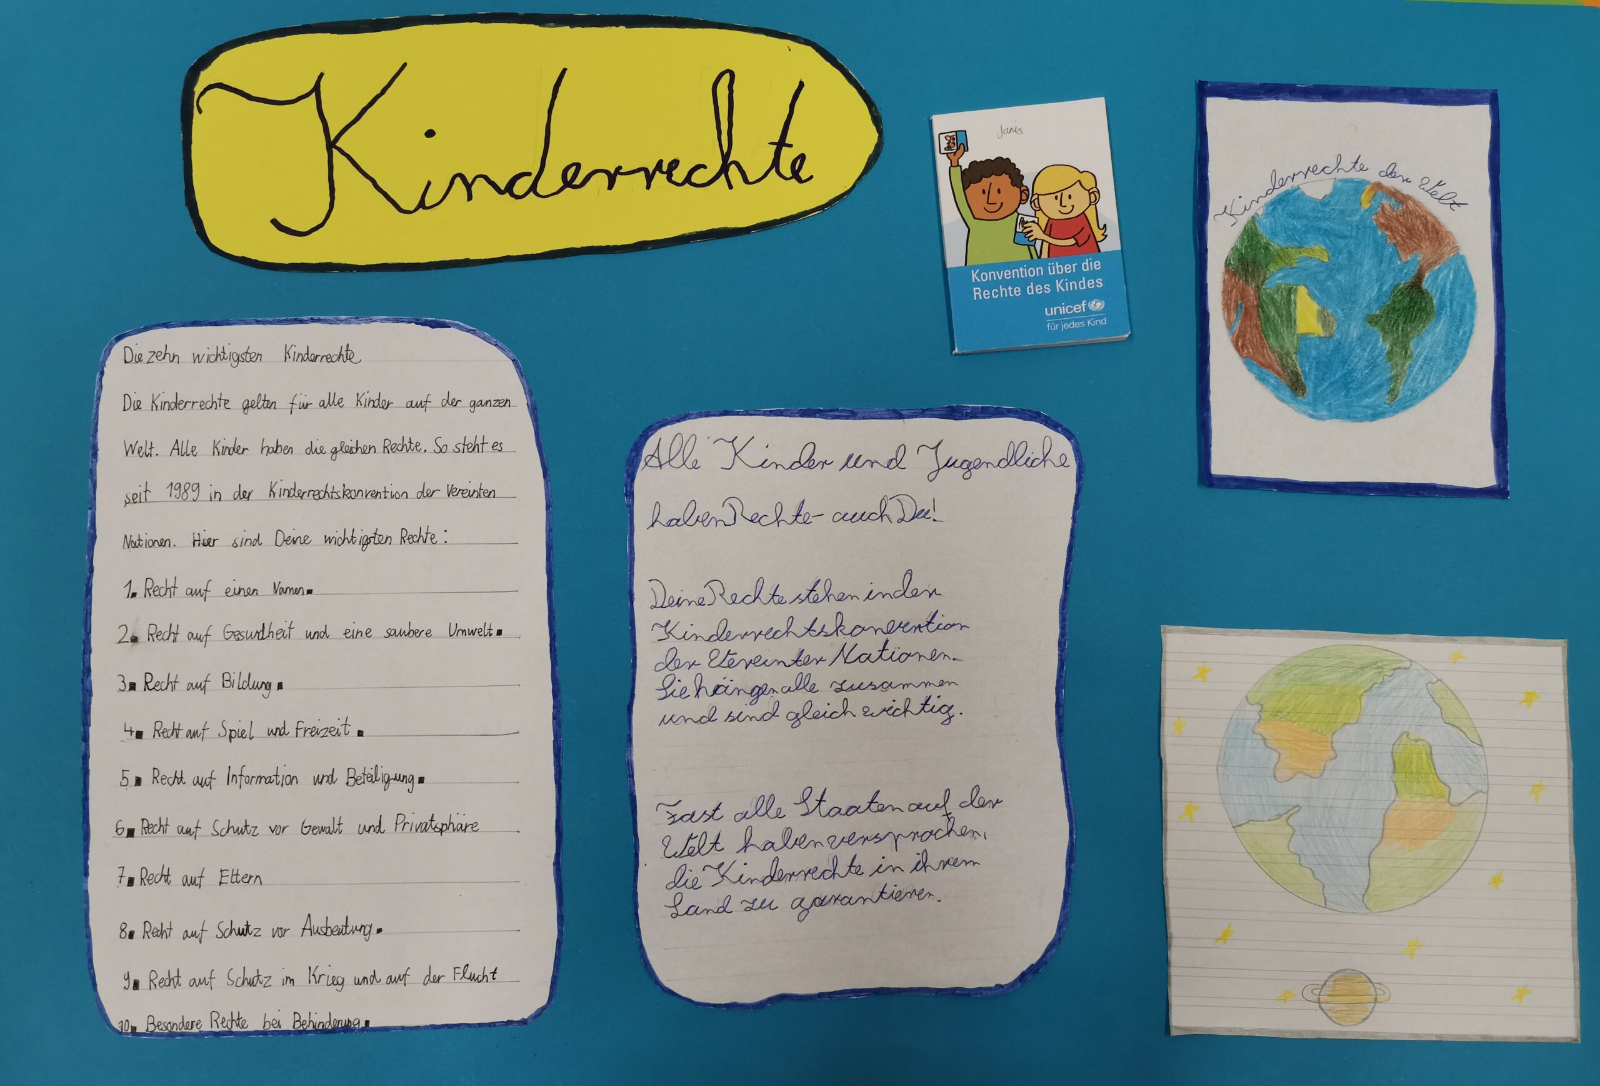 Kinderrechte
Janis
Konvention über die
Rechte des Kindes
unicef
für jedes Kind
Kinderrechte der Welt
Die zehn wichtigsten Kinderrechte
Die Kinderrechte gelten für alle Kinder auf der ganzen
Welt. Alle Kinder haben die gleichen Rechte. So steht es
seit 1989 in der Kinderrechtskonvention der Vereinten
Nationen. Hier sind Deine wichtigsten Rechte:
1. Recht auf einen Namen.
2. Recht auf Gesundheit und eine saubere Umwelt.
3. Recht auf Bildung.
4. Recht auf Spiel und Freizeit.
5. Recht auf Information und Beteiligung.
6. Recht auf Schutz vor Gewalt und Privatsphäre
7. Recht auf Eltern
8. Recht auf Schutz vor Ausbeutung.
9. Recht auf Schutz im Krieg und auf der Flucht
10. Besondere Rechte bei Behinderung.
Alle Kinder und Jugendliche
haben Rechte - auch Du!
Deine Rechte stehen in der
Kinderrechtskonvention
der Vereinter Nationen.
Sie hängen alle zusammen
und sind gleich wichtig.
Fast alle Staaten auf der
Welt haben versprochen,
die Kinderrechte in ihrem
Land zu garantieren.